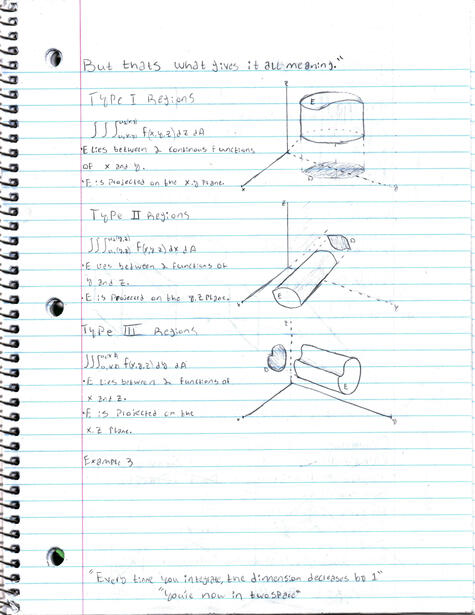 But thats what gives it all meaning."
Type I Regions
∭ f(x,y,z)dz dA
• E lies between 2 continous functions
of x and y.
• E is Projected on the x,y Plane.
Type II Regions
∭ f(x,y,z) dx dA
• E lies between 2 functions of
y and z.
• E is Projected on the y,z Plane.
Type III Regions
∭ f(x,y,z) dy dA
• E lies between 2 functions of
x and z.
• E is Projected on the
x,z Plane.
Example 3
"Every time you integrate, the dimension decreases by 1"
"You're now in twospace"
z
E
D
x
y
z
D
E
x
y
z
D
E
x
y